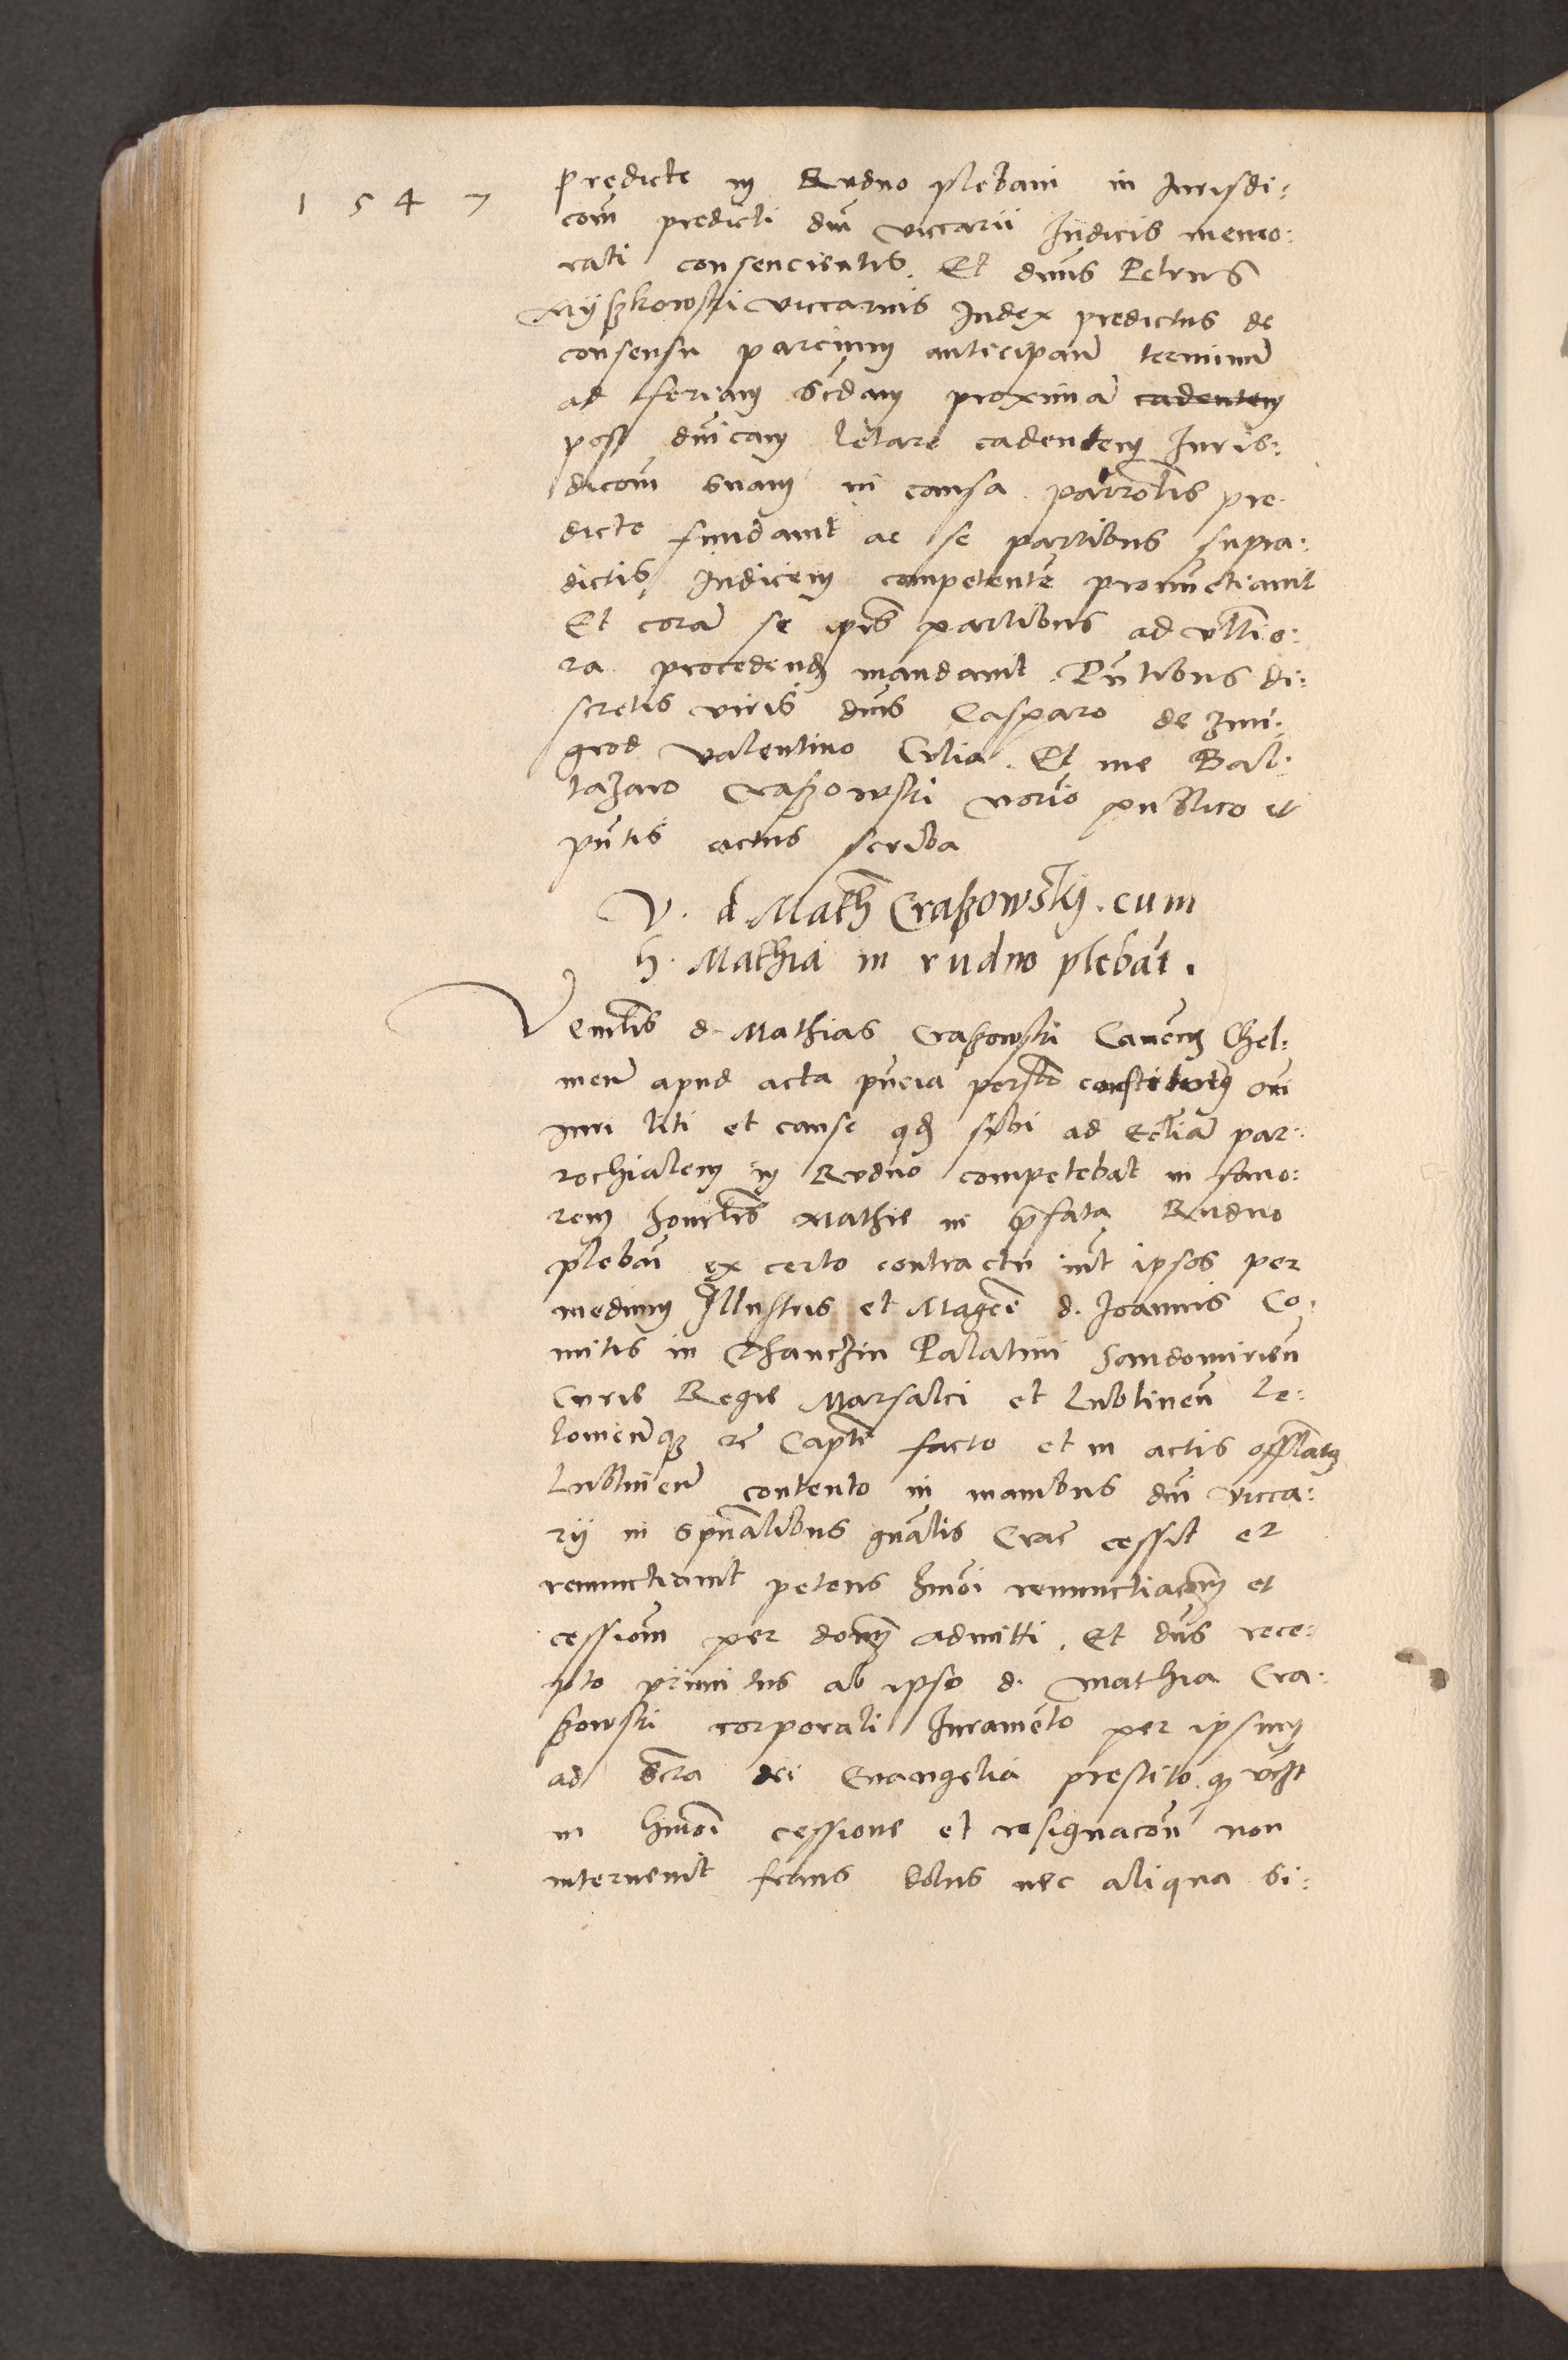 1 5 4 7
predicte in Rudno plebani in Jurisdi:
com̄ predicti dn̄i viccarii Judicis memo:
rati consencientis. Et dn̄us Petrus
Myszkowski viccarius Judex predictus de
consensu parcium anticipan̄ terminū
ad feriam scd̄am proximā cadentem
post dn̄icam letare cadentem Juris:
dicom̄ suam in causa parrōlis pre
dicte fundavit ac se partibus supra:
dictis Judicem competentē pronūctiavit
Et corā se ip̄is partibus ad vlt̄io:
ra procedend̄ mandavit. Pn̄tibus di:
scretis viris dn̄is Casparo de Zmi:
grod Valentino Cilia. Et me Bal:
tazaro Craszowski no̅rio publico et
pn̄tis actus scriba
V. d. Math̄ Craszowskÿ. cum
h. Mathia in rudno plebān.
Ven̄lis d. Mathias Craszowski Can̄cus Chel:
men̄ apud acta pn̄cia person̄ constitutus om̄i
iuri liti et cause qd̄ sibi ad eccl̄iā par:
rochialem in Rudno competebat in favo:
rem hon̄lis Mathie in p̄fata Rudno
plebān ex certo contractu int̄ ipsos per
medium Illustris et Mag̅ci d. Joannis Co:
mitis in Thanczin Palatini Sandomirien̄
Curie Regie Marsalci et Lublinen̄ Le:
lomien̄q; etc̄ Capit̄ facto et in actis offl̄atus
Lublinen̄ contento in manibus dn̄i vicca:
rij in sp̄ualibus gn̄alis Crac̄ cessit et
renunctiavit petens hmōi renunctiacōm et
cessiom̄ per dom̄ admitti. Et dn̄s rece:
pto primitus ab ipso d. Mathia Cra:
szowski corporali Juramēto per ipsum
ad sc̄ra dei Evangelia prestito. q;
in hmōi cessione et resignacōn̄ non
intervenit fraus dolus nec aliqua si: